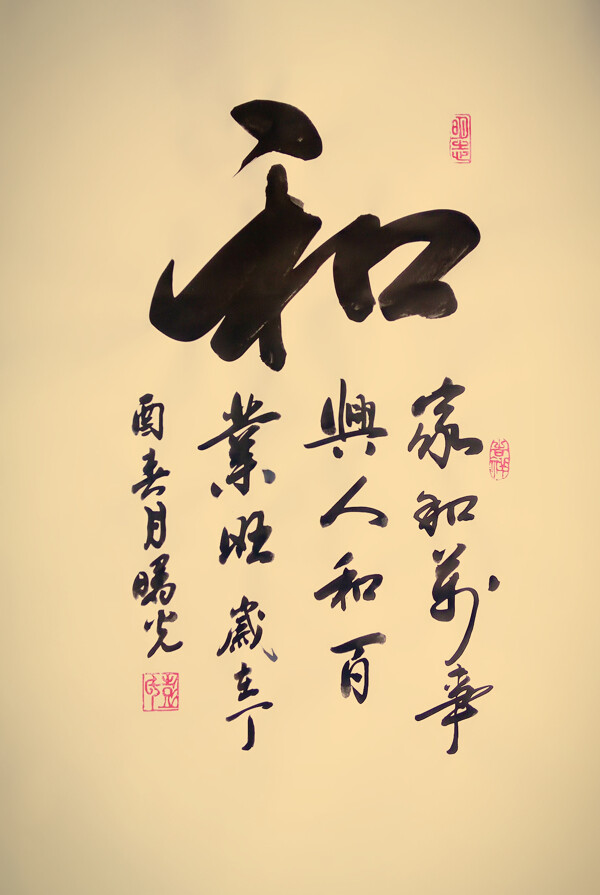 和
明志
家和萬事
吉祥
興人和百
業旺歲在丁
酉春月光